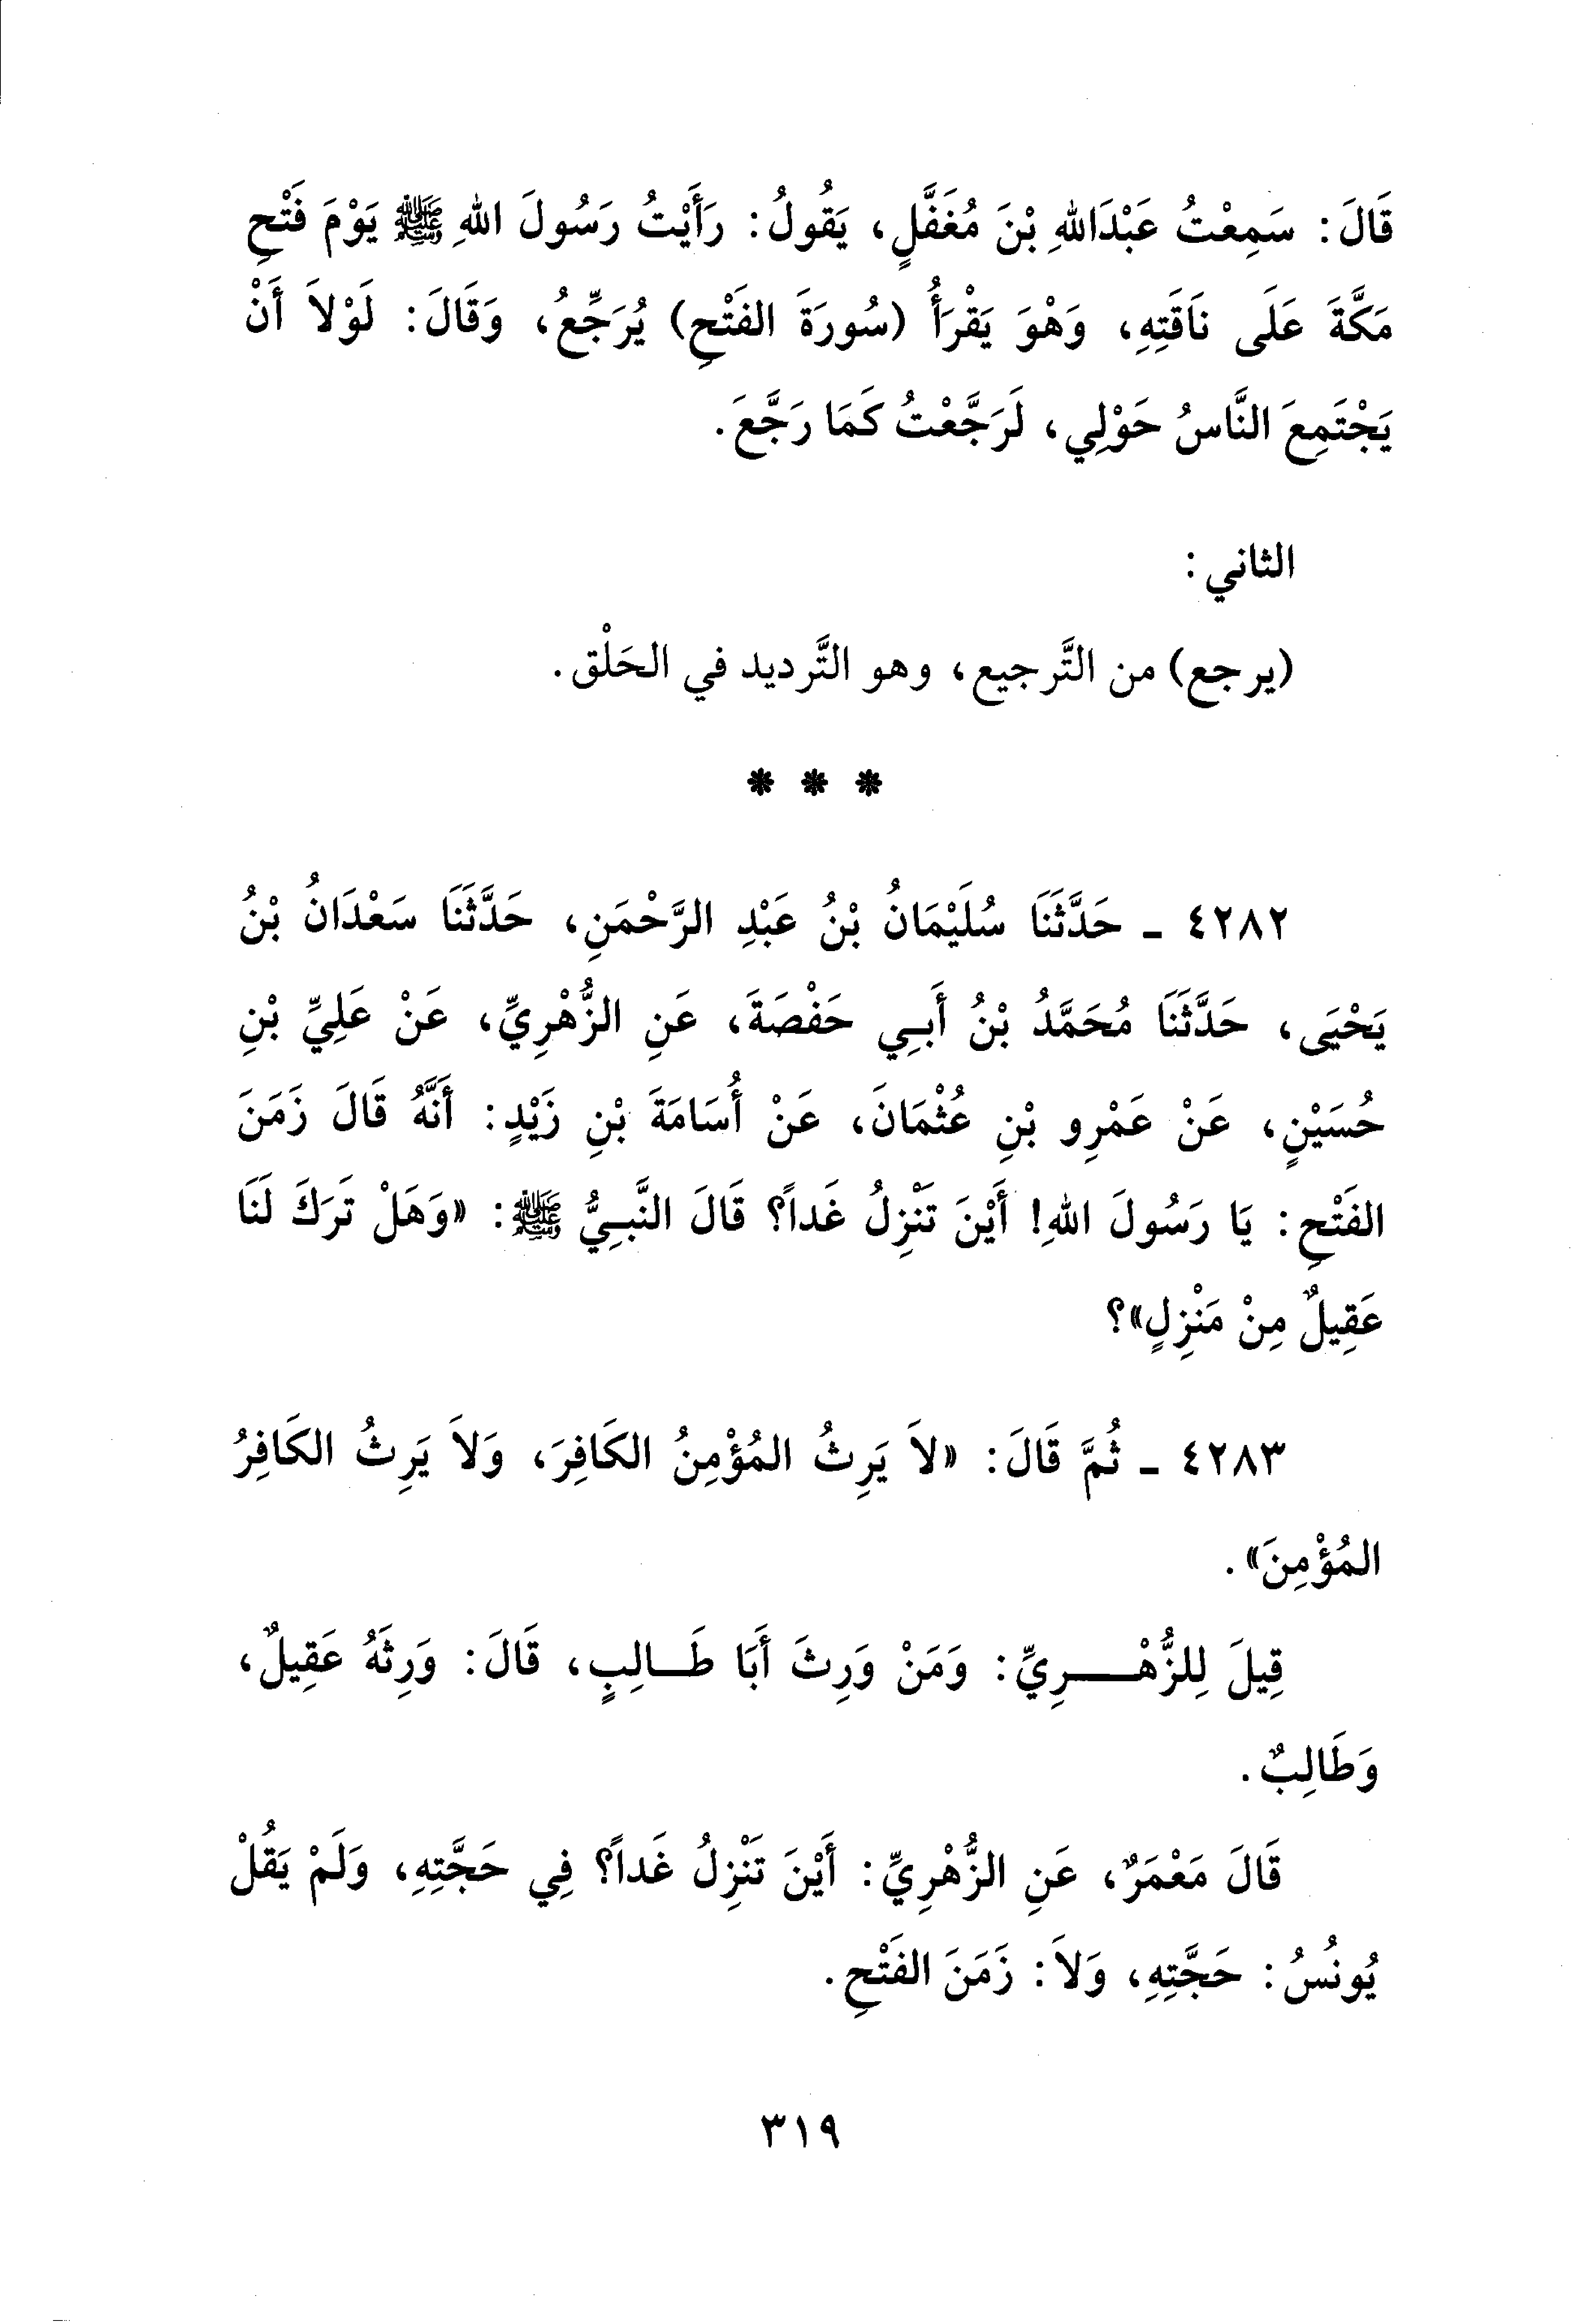 قَالَ: سَمِعْتُ عَبْدَاللهِ بْنَ مُغَفَّلٍ، يَقُولُ: رَأَيْتُ رَسُولَ اللهِ ﷺ يَوْمَ فَتْحِ
مَكَّةَ عَلَى نَاقَتِهِ، وَهْوَ يَقْرَأُ (سُورَةَ الفَتْحِ) يُرَجِّعُ، وَقَالَ: لَوْلاَ أَنْ
يَجْتَمِعَ النَّاسُ حَوْلِي، لَرَجَّعْتُ كَمَا رَجَّعَ.
الثاني:
(يرجع) من التَّرجيع، وهو التَّرديد في الحَلْق.
* * *
٤٢٨٢ - حَدَّثَنَا سُلَيْمَانُ بْنُ عَبْدِ الرَّحْمَنِ، حَدَّثَنَا سَعْدَانُ بْنُ
يَحْيَى، حَدَّثَنَا مُحَمَّدُ بْنُ أَبِي حَفْصَةَ، عَنِ الزُّهْرِيِّ، عَنْ عَلِيِّ بْنِ
حُسَيْنٍ، عَنْ عَمْرِو بْنِ عُثْمَانَ، عَنْ أُسَامَةَ بْنِ زَيْدٍ: أَنَّهُ قَالَ زَمَنَ
الفَتْحِ: يَا رَسُولَ اللهِ! أَيْنَ تَنْزِلُ غَداً؟ قَالَ النَّبِيُّ ﷺ: «وَهَلْ تَرَكَ لَنَا
عَقِيلٌ مِنْ مَنْزِلٍ»؟
٤٢٨٣ - ثُمَّ قَالَ: «لاَ يَرِثُ المُؤْمِنُ الكَافِرَ، وَلاَ يَرِثُ الكَافِرُ
المُؤْمِنَ».
قِيلَ لِلزُّهْرِيِّ: وَمَنْ وَرِثَ أَبَا طَالِبٍ، قَالَ: وَرِثَهُ عَقِيلٌ،
وَطَالِبٌ.
قَالَ مَعْمَرٌ، عَنِ الزُّهْرِيِّ: أَيْنَ تَنْزِلُ غَداً؟ فِي حَجَّتِهِ، وَلَمْ يَقُلْ
يُونُسُ: حَجَّتِهِ، وَلاَ: زَمَنَ الفَتْحِ.
٣١٩